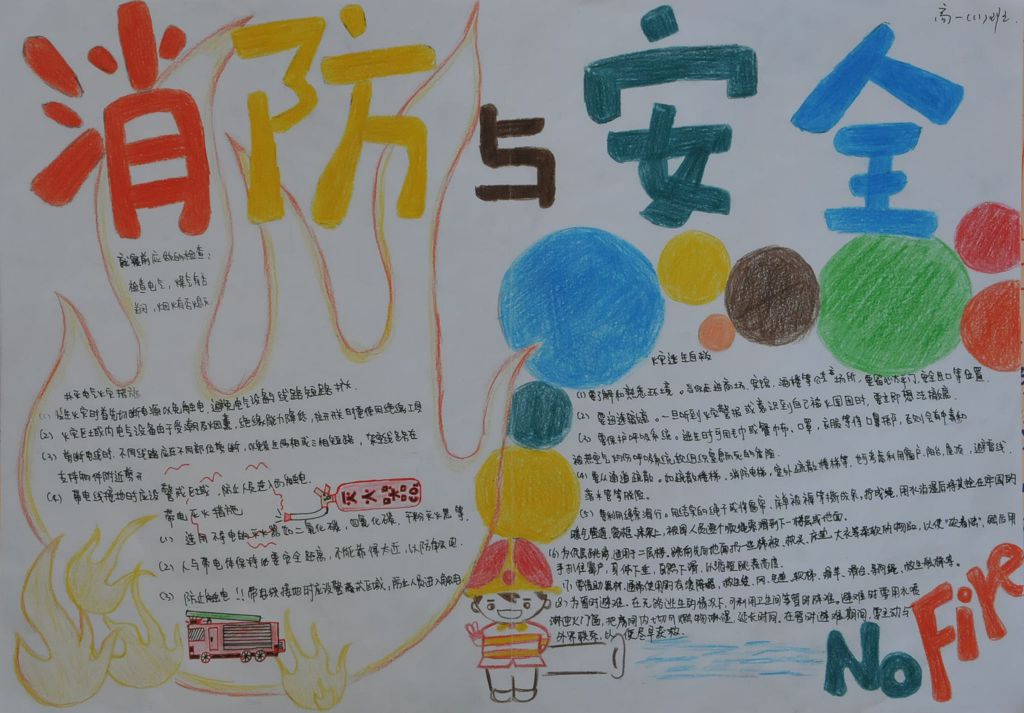 高一(1)班
消防与安全
就寝前应做的检查：
检查电气，煤气有否
关闭，烟火有否熄灭
扑灭电气火灾措施
(1) 发生火灾时首先切断电源以免触电，避免电气设备的线路短路
(2) 火灾区域内电气设备由于受潮及烟熏，绝缘能力降低，拉开关时要使用绝缘工具
(3) 剪断电线时，不同线路应在不同部位剪断，以免造成两相或三相短路，
支持物件附近剪开
(4) 带电线接地时应设警戒区域，防止人员进入而触电
带电灭火措施
灭火器 CO₂
(1) 选用不导电的灭火器如二氧化碳，四氯化碳，干粉灭火器等
(2) 人与带电体保持必要安全距离，不能靠得太近，以防触电
(3) 防止触电！！带电线接地时应设警戒区域，防止人员进入触电
火灾逃生自救
(1) 要了解和熟悉环境。当你在进商场，宾馆，酒楼等公共场所，要留心太平门，安全出口等位置
(2) 要迅速撤离。一旦听到火灾警报或意识到自己被火围困时，要立即想法撤离
(3) 要保护呼吸系统。逃生时可用毛巾或餐巾布，口罩，衣服等将口鼻捂严，否则会有中毒和
被热空气灼伤呼吸系统软组织窒息致死的危险
(4) 要从通道疏散。如疏散楼梯，消防电梯，室外疏散楼梯等，也可考虑利用窗户，阳台，屋顶，避雷线
落水管等脱险
(5) 要利用绳索滑行。用结实的绳子或将窗帘，床单被褥等撕成条，拧成绳，用水沾湿后将其拴在牢固的
暖气管道，窗框，床架上，被困人员逐个顺绳索滑到下一楼层或地面
(6) 为低层跳离，适用于二层楼，跳前先向地面扔一些棉被，枕头，床垫，大衣等柔软的物品，以便“软着陆”，然后用
手扒住窗户，身体下垂，自然下滑，以缩短跳落高度
(7) 要借助器材，通常使用的有缓降器，救生袋，网，气垫，软梯，滑竿，滑台，导向绳，救生舷梯等
(8) 为暂时避难，在无路逃生的情况下，可利用卫生间等暂时辟难。避难时要用水喷
淋迎火门窗，把房间内一切可燃物淋湿，延长时间，在暂时避难期间，要主动与
外界联系，以便尽早获救
No Fire